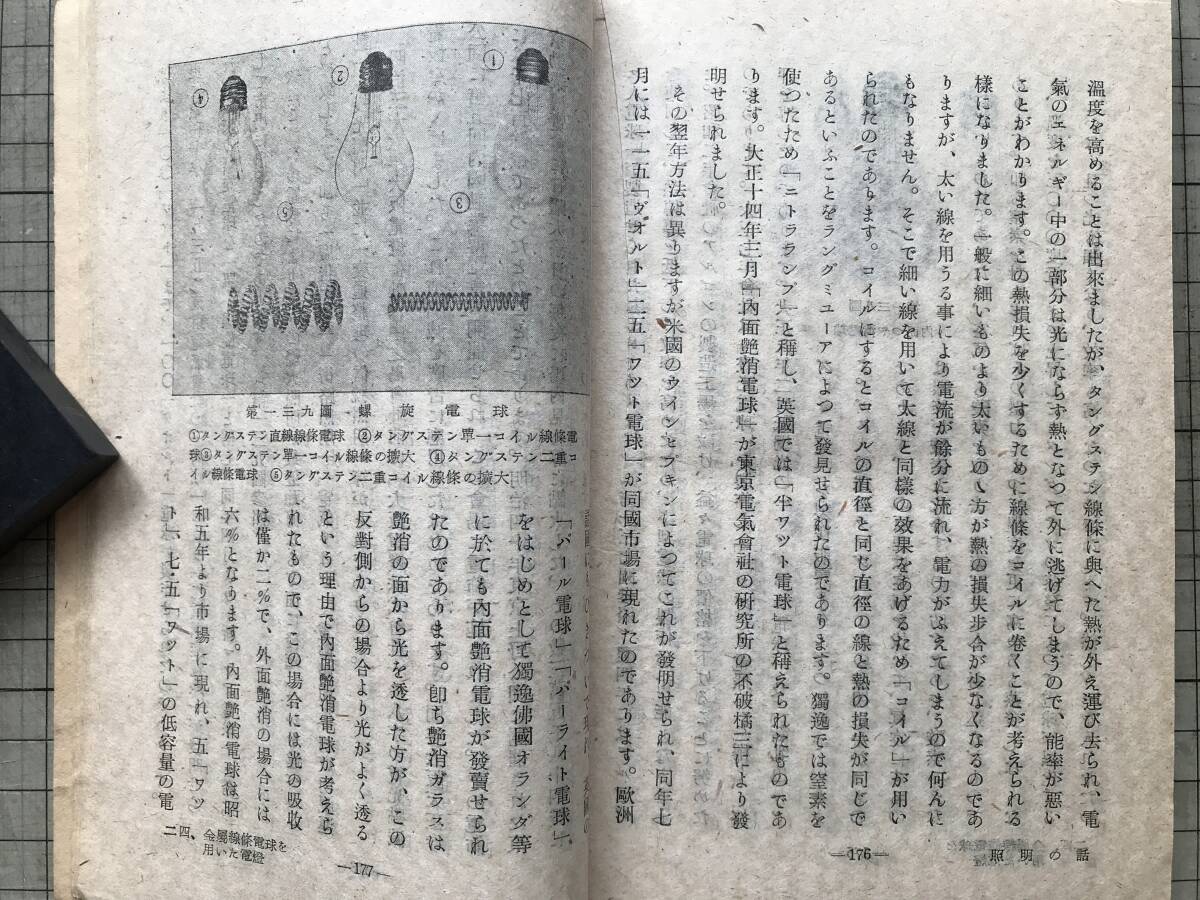 溫度を高めることは出來ましたが、タングステン線條に與へた熱が外え運び去られ、電
氣のエネルギー中の一部分は光にならず熱となつて外に逃げてしまうので、能率が惡い
ことがわかります。この熱損失を少くするために線條をコイルに卷くことが考えられる
樣になりました。一般に細いものより太いものゝ方が熱の損失步合が少なくなるのであ
りますが、太い線を用うる事により電流が餘分に流れ、電力がふえてしまうので何んに
もなりません。そこで細い線を用いて太線と同樣の效果をあげるため「コイル」が用い
られたのであります。コイルにするとコイルの直徑と同じ直徑の線と熱の損失が同じで
あるといふことをラングミューアによつて發見せられたのであります。獨逸では窒素を
使つたため「ニトラランプ」と稱し、英國では「半ワット電球」と稱えられたものであ
ります。大正十四年三月「內面艶消電球」が東京電氣會社の硏究所の不破橘三により發
明せられました。
その翌年方法は異りますが米國のウインとプキンによつてこれが發明せられ、同年七
月には一一五「ヴオルト」二五「ワツト電球」が同國市場に現れたのであります。歐洲
照明の話
―176―
① ② ③ ④ ⑤
第一三九圖 螺旋電球
①タングステン直線線條電球 ②タングステン單一コイル線條電
球③タングステン單一コイル線條の擴大 ④タングステン二重コ
イル線條電球 ⑤タングステン二重コイル線條の擴大
「パール電球」「パーライト電球」、
をはじめとして獨逸佛國オランダ等
に於ても內面艶消電球が發賣せられ
たのであります。卽ち艶消ガラスは
艶消の面から光を透した方が、この
反對側からの場合より光がよく透る
という理由で內面艶消電球が考えら
れたもので、この場合には光の吸收
は僅か二%で、外面艶消の場合には
六%となります。內面艶消電球は昭
和五年より市場に現れ、五「ワツ
ト」、七・五「ワット」の低容量の電
二四、金屬線條電球を
用いた電燈
―177―